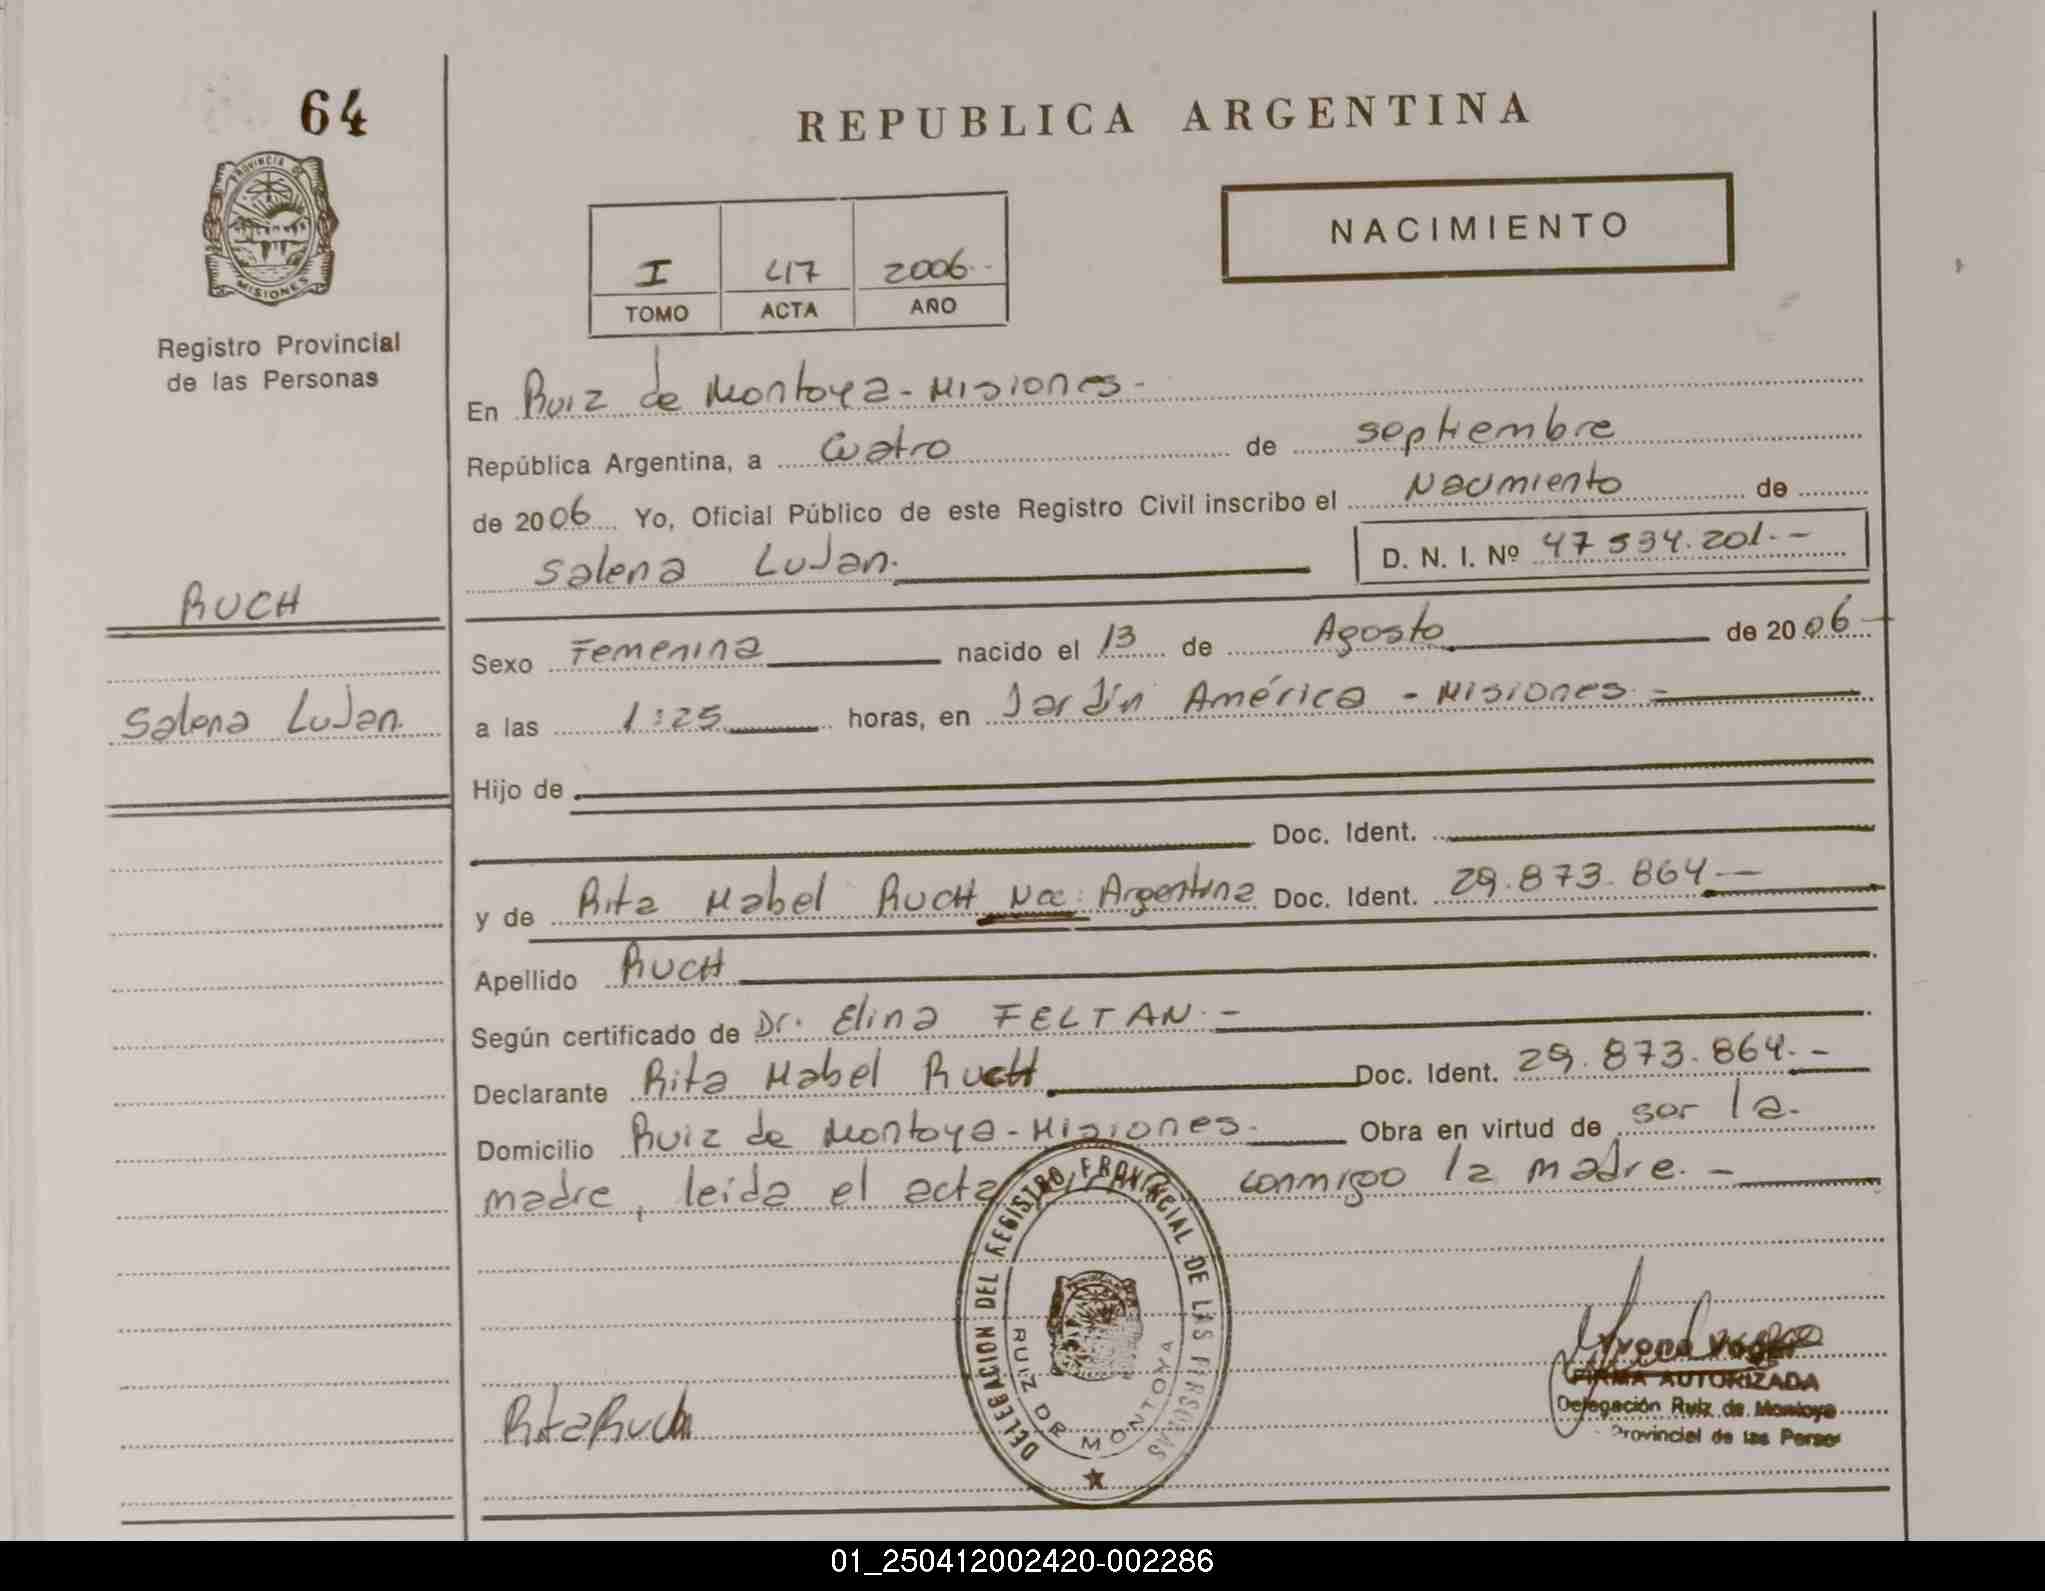 64
REPUBLICA ARGENTINA
PROVINCIA DE
MISIONES
NACIMIENTO
I 417 2006.-
TOMO ACTA AÑO
Registro Provincial
de las Personas
En Ruiz de Montoya - Misiones.-
República Argentina, a Cuatro de septiembre
de 2006 Yo, Oficial Público de este Registro Civil inscribo el Nacimiento de
Salena LuJan. D. N. I. Nº 47 534.201.-
RUCH
Sexo Femenina nacido el 13 de Agosto de 2006-
Salena LuJan.
a las 1:25 horas, en Jardín América - Misiones.-
Hijo de
Doc. Ident.
y de Rita Mabel RUCH Nac: Argentina Doc. Ident. 29.873.864.-
Apellido RUCH
Según certificado de Dr. Elina FELTAN.-
Declarante Rita Mabel RUCH Doc. Ident. 29.873.864.-
Domicilio Ruiz de Montoya - Misiones. Obra en virtud de ser la.
madre, leida el acta conmigo la madre.-
DELEGACION DEL REGISTRO PROVINCIAL DE LAS PERSONAS
RUIZ DE MONTOYA
Rita Ruch
FIRMA AUTORIZADA
Delegación Ruiz de Montoya
Provincial de las Perso
01_250412002420-002286